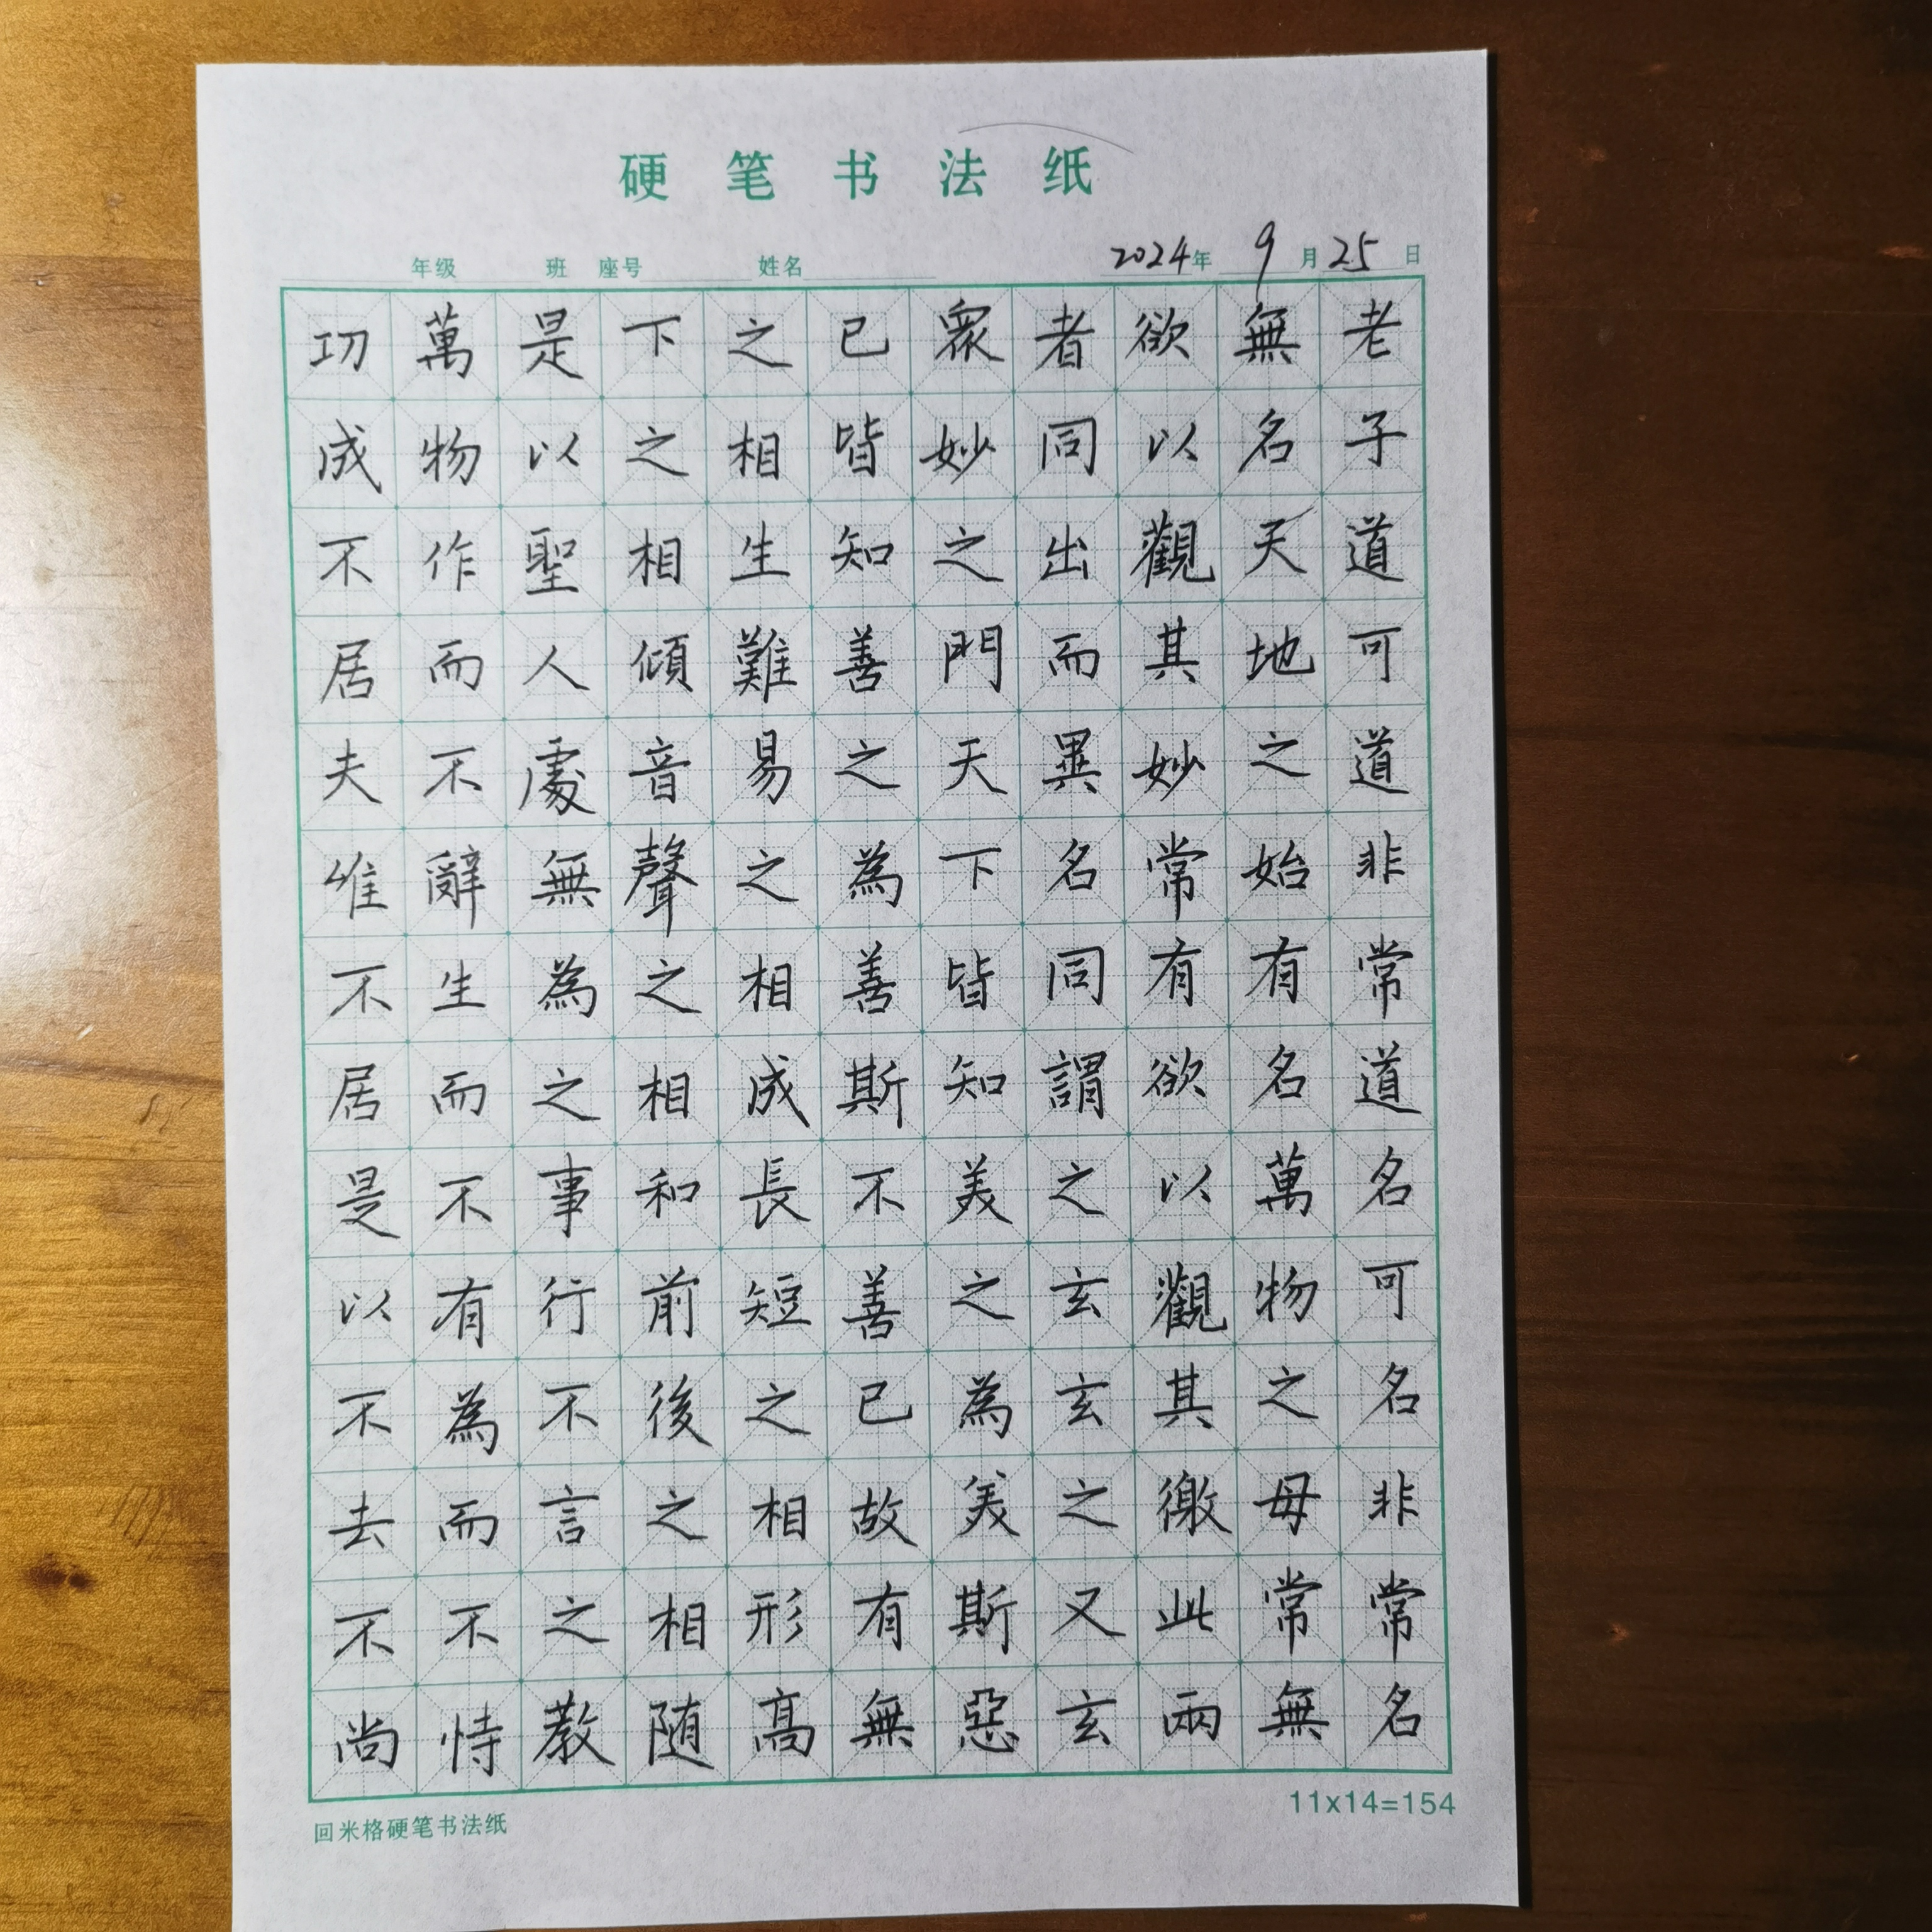 硬笔书法纸
年级 班 座号 姓名 2024年 9月25日
老子道可道非常道名可名非常名
無名天地之始有名萬物之母常無
欲以觀其妙常有欲以觀其徼此兩
者同出而異名同謂之玄玄之又玄
眾妙之門天下皆知美之為美斯惡
已皆知善之為善斯不善已故有無
之相生難易之相成長短之相形高
下之相傾音聲之相和前後之相随
是以聖人處無為之事行不言之教
萬物作而不辭生而不有為而不恃
功成不居夫唯不居是以不去不尚
回米格硬笔书法纸
11x14=154